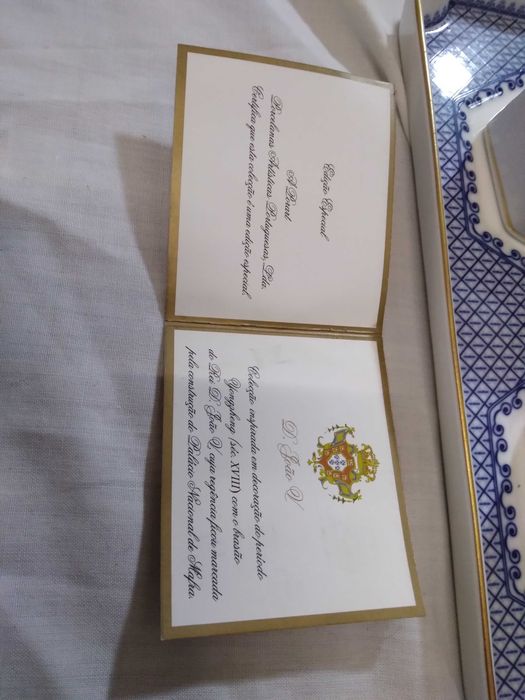 Edição Especial
A Porart
Porcelanas Artísticas Portuguesas, Lda.
Certifica que esta coleção é uma edição especial
D. João V
Coleção inspirada em decoração do período
Yongzheng (séc. XVIII) com o brasão
do Rei D. João V, cuja regência ficou marcada
pela construção do Palácio Nacional de Mafra.